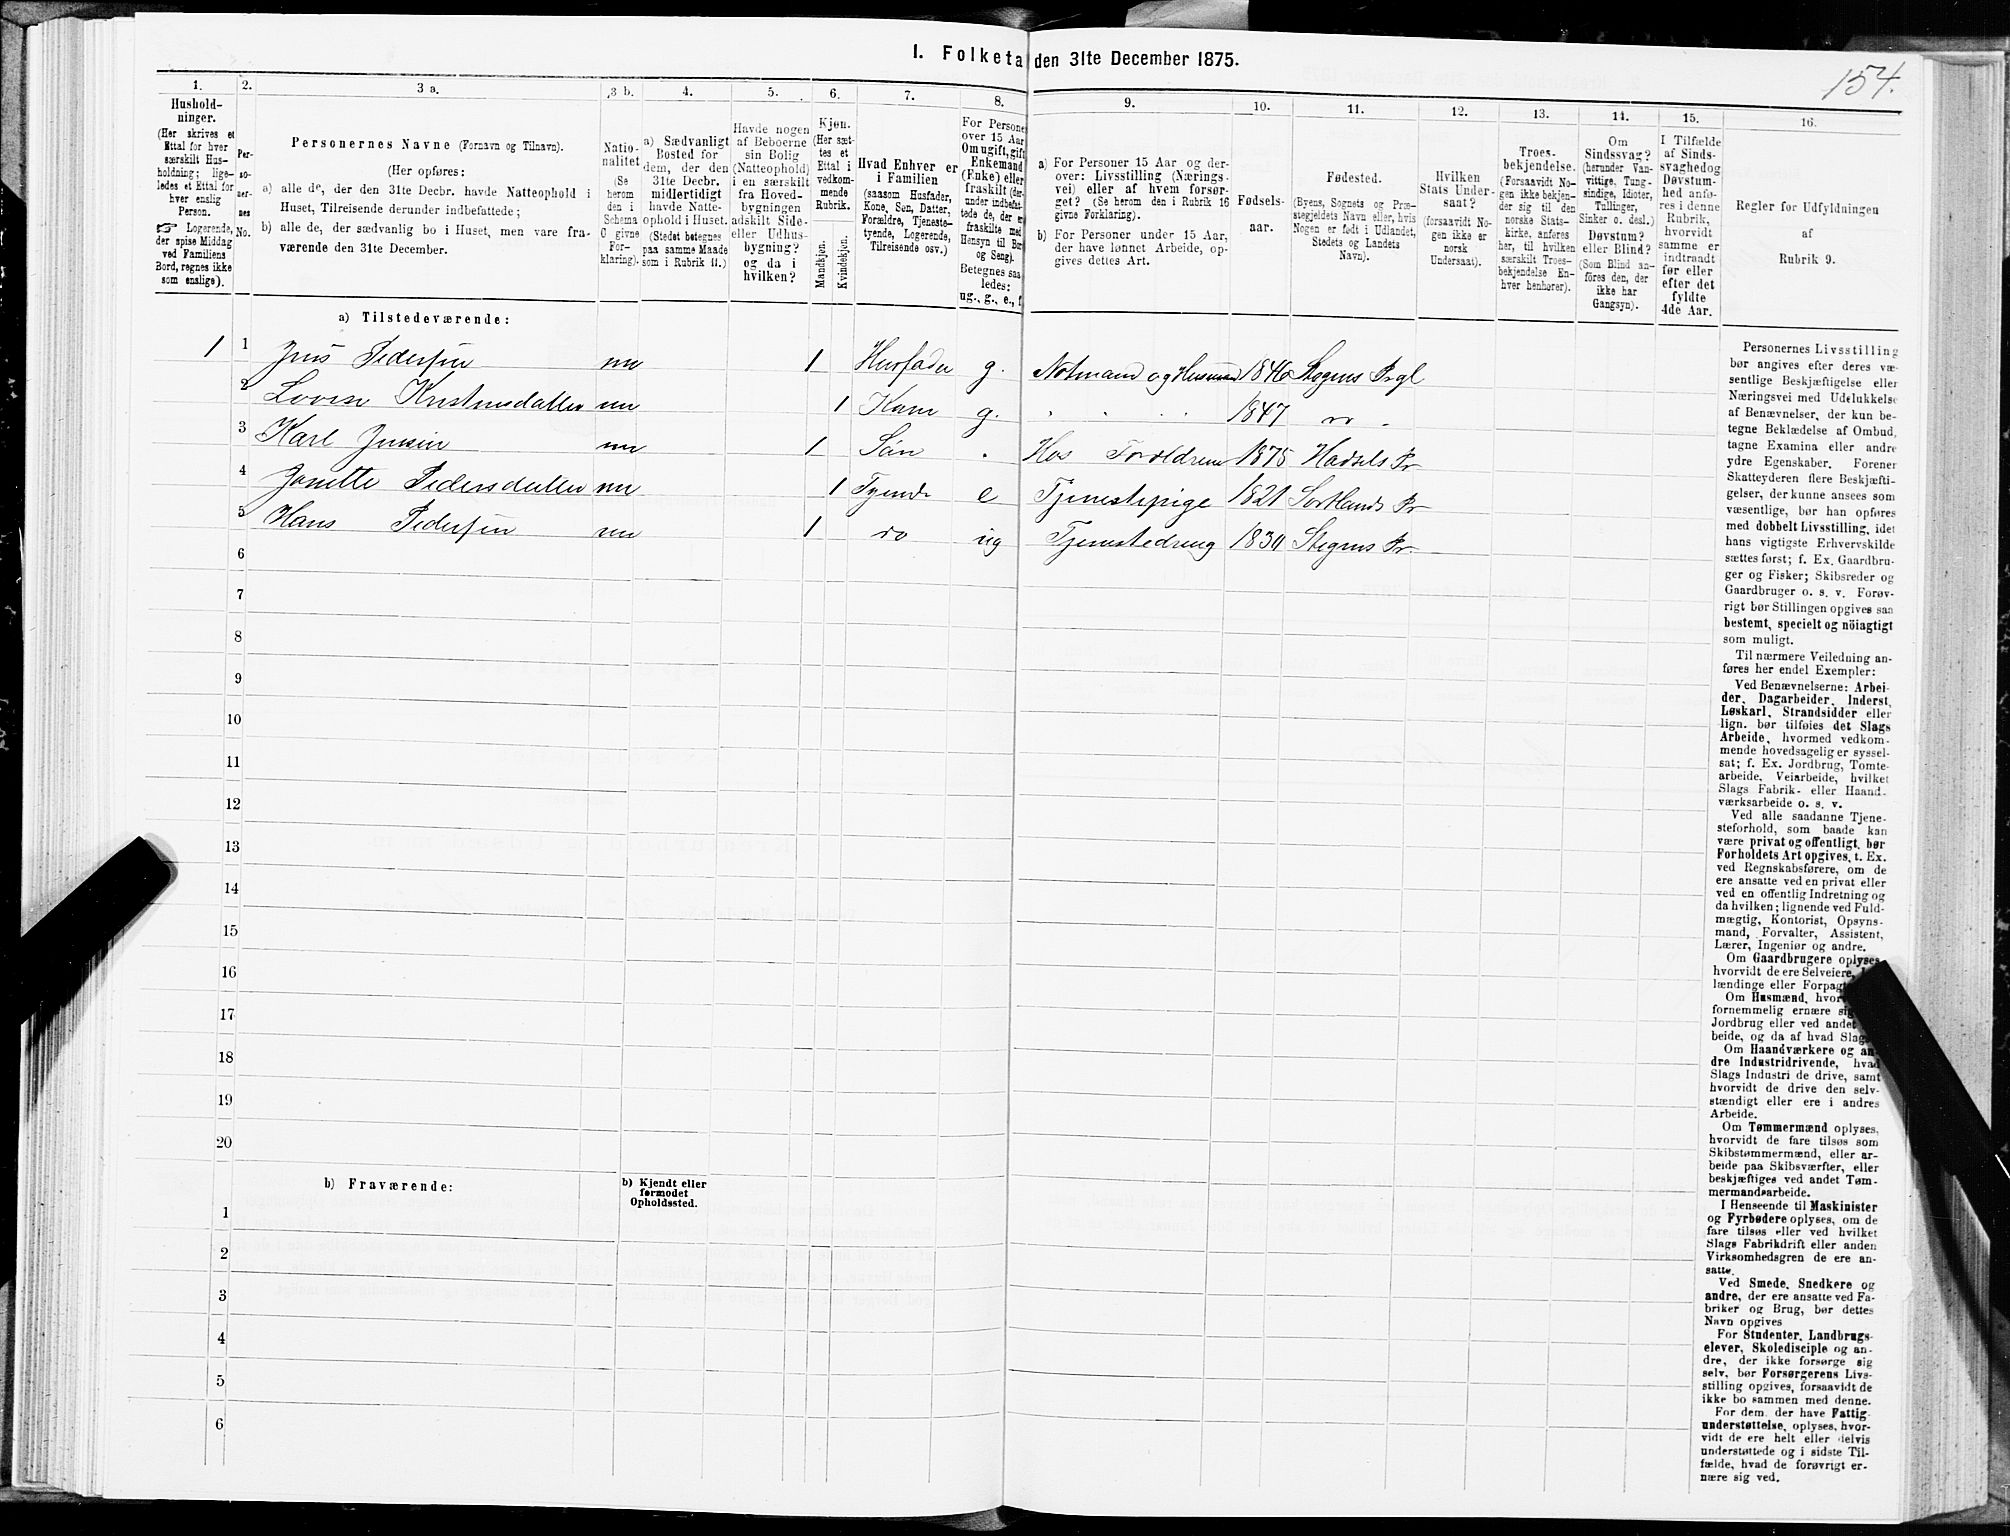 I. Folketa den 31te December 1875.
154.
1. 2. 3 a. 3 b. 4. 5. 6. 7. 8. 9. 10. 11. 12. 13. 14. 15. 16.
Hushold-
ninger.
(Her skrives et
Ettal for hver
særskilt Hus-
holdning; lige-
ledes et Ettal for
hver enslig
Person.
☞ Logerende,
der spise Middag
ved Familiens
Bord, regnes ikke
som enslige).
Per-
so-
ner-
nes
No.
Personernes Navne (Fornavn og Tilnavn).
(Her opføres:
a) alle de, der den 31te Decbr. havde Natteophold i
Huset, Tilreisende derunder indbefattede;
b) alle de, der sædvanlig bo i Huset, men vare fra-
værende den 31te December.
Natio-
nalitet
(Se
herom
den i
Schema
C givne
For-
klaring).
a) Sædvanligt
Bosted for
dem, der den
31te Decbr.
midlertidigt
havde Natte-
ophold i Huset.
(Stedet betegnes
paa samme Maade
som i Rubrik 11.)
Havde nogen
af Beboerne
sin Bolig
(Natteophold)
i en særskilt
fra Hoved-
bygningen
adskilt Side-
eller Udhus-
bygning?
og da i
hvilken?
Kjøn.
(Her sæt-
tes et
Ettal i
vedkom-
mende
Rubrik.
Mandkjøn.
Kvindekjøn.
Hvad Enhver er
i Familien
(saasom Husfader,
Kone, Søn, Datter,
Forældre, Tjeneste-
tyende, Logerende,
Tilreisende osv.)
For Persone
over 15 Aar
Om ugift, gift
Enkemand
(Enke) eller
fraskilt (der-
under indbefat-
tede de, der er
fraskilte med
Hensyn til Bor
og Seng).
Betegnes saa
ledes:
ug., g., e., f.
a) For Personer 15 Aar og der-
over: Livsstilling (Nærings-
vei) eller af hvem forsør-
get? (Se herom den i Rubrik 16
givne Forklaring).
b) For Personer under 15 Aar,
der have lønnet Arbeide, op-
gives dettes Art.
Fødsels-
aar.
Fødested.
(Byens, Sognets og Præ-
stegjeldets Navn eller, hvis
Nogen er født i Udlandet,
Stedets og Landets
Navn).
Hvilken
Stats Under-
saat?
(forsaavidt No-
gen ikke er
norsk
Undersaat).
Troes-
bekjendelse.
(Forsaavidt No-
gen ikke bekjen-
der sig til den
norske Stats-
kirke, anføres
her, til hvilken
særskilt Troes-
bekjendelse En-
hver henhører).
Om
Sindssvag?
(herunder Van-
vittige, Tung-
sindige, Idioter,
Tullinger,
Sinker o. desl.)
Døvstum?
eller Blind?
(Som Blind an-
føres den, der
ikke har
Gangsyn).
I Tilfælde
af Sinds-
svaghed og
Døvstum-
hed anfø-
res i denne
Rubrik,
hvorvidt
samme er
indtraadt
før eller
efter det
fyldte
4de Aar.
Regler for Udfyldningen
af
Rubrik 9.
a) Tilstedeværende:
1 1 Jens Pedersen nn 1 Husfader g. Notmand og Husmand 1846 Stegens Prgl
2 Lovise Kristensdatter nn 1 Kone g. " " " 1847 do
3 Karl Jensen nn 1 Søn . Hos Forældrene 1875 Hadsels Pr
4 Janette Pedersdatter nn 1 Tyende e Tjenestepige 1821 Sortlands Pr
5 Hans Pedersen nn 1 do ug Tjenestedreng Stegens Pr.
6
7
8
9
10
11
12
13
14
15
16
17
18
19
20
b) Fraværende:
b) Kjendt eller
formodet
Opholdssted.
1
2
3
4
5
6
Personernes Livsstilling
bør angives efter deres væ-
sentlige Beskjæftigelse eller
Næringsvei med Udelukkelse
af Benævnelser, der kun be-
tegne Beklædelse af Ombud,
tagne Examina eller andre
ydre Egenskaber. Forener
Skatteyderen flere Beskjæfti-
gelser, der kunne ansees som
væsentlige, bør han opføres
med dobbelt Livsstilling, idet
hans vigtigste Erhvervskilde
sættes først; f. Ex. Gaardbru-
ger og Fisker; Skibsreder og
Gaardbruger o. s. v. Forøv-
rigt bør Stillingen opgives saa
bestemt, specielt og nöiagtigt
som muligt.
Til nærmere Veiledning an-
føres her endel Exempler:
Ved Benævnelserne: Arbei-
der, Dagarbeider, Inderst,
Løskarl, Strandsidder eller
lign. bør tilføies det Slags
Arbeide, hvormed vedkom-
mende hovedsagelig er syssel-
sat; f. Ex. Jordbrug, Tomte-
arbeide, Veiarbeide, hvilket
Slags Fabrik- eller Haand-
værksarbeide o. s. v.
Ved alle saadanne Tjene-
steforhold, som baade kan
være privat og offentligt, bør
Forholdets Art opgives, t. Ex.
ved Regnskabsførere, om de
ere ansatte ved en privat eller
ved en offentlig Indretning og
da hvilken; lignende ved Fuld-
mægtig, Kontorist, Opsyns-
mand, Forvalter, Assistent,
Lærer, Ingeniør og andre.
Om Gaardbrugere oplyses,
hvorvidt de ere Selveiere,
lændinge eller Forpag
Om Husmænd, hvor
fornemmelig ernære sig
Jordbrug eller ved andet
beide, og da af hvad Slags
Om Haandværkere og an-
dre Industridrivende, hvad
Slags Industri de drive, samt
hvorvidt de drive den selv-
stændigt eller ere i andres
Arbeide.
Om Tømmermænd oplyses,
hvorvidt de fare tilsøs som
Skibstømmermænd, eller ar-
beide paa Skibsværfter, eller
beskjæftiges ved andet Tøm-
mermandsarbeide.
I Henseende til Maskinister
og Fyrbødere oplyses, om de
fare tilsøs eller ved hvilket
Slags Fabrikdrift eller anden
Virksomhedsgren de ere an-
satte.
Ved Smede, Snedkere og
andre, der ere ansatte ved Fa-
briker og Brug, bør dettes
Navn opgives
For Studenter, Landbrugs-
elever, Skoledisciple og an-
dre, der ikke forsørge sig
selv, bør Forsørgerens Livs-
stilling opgives, forsaavidt de
ikke bo sammen med denne.
For dem, der have Fattig-
understøttelse, oplyses, hvor-
vidt de ere helt eller delvis
understøttede og i sidste Til-
fælde, hvad de forøvrigt er-
nære sig ved.